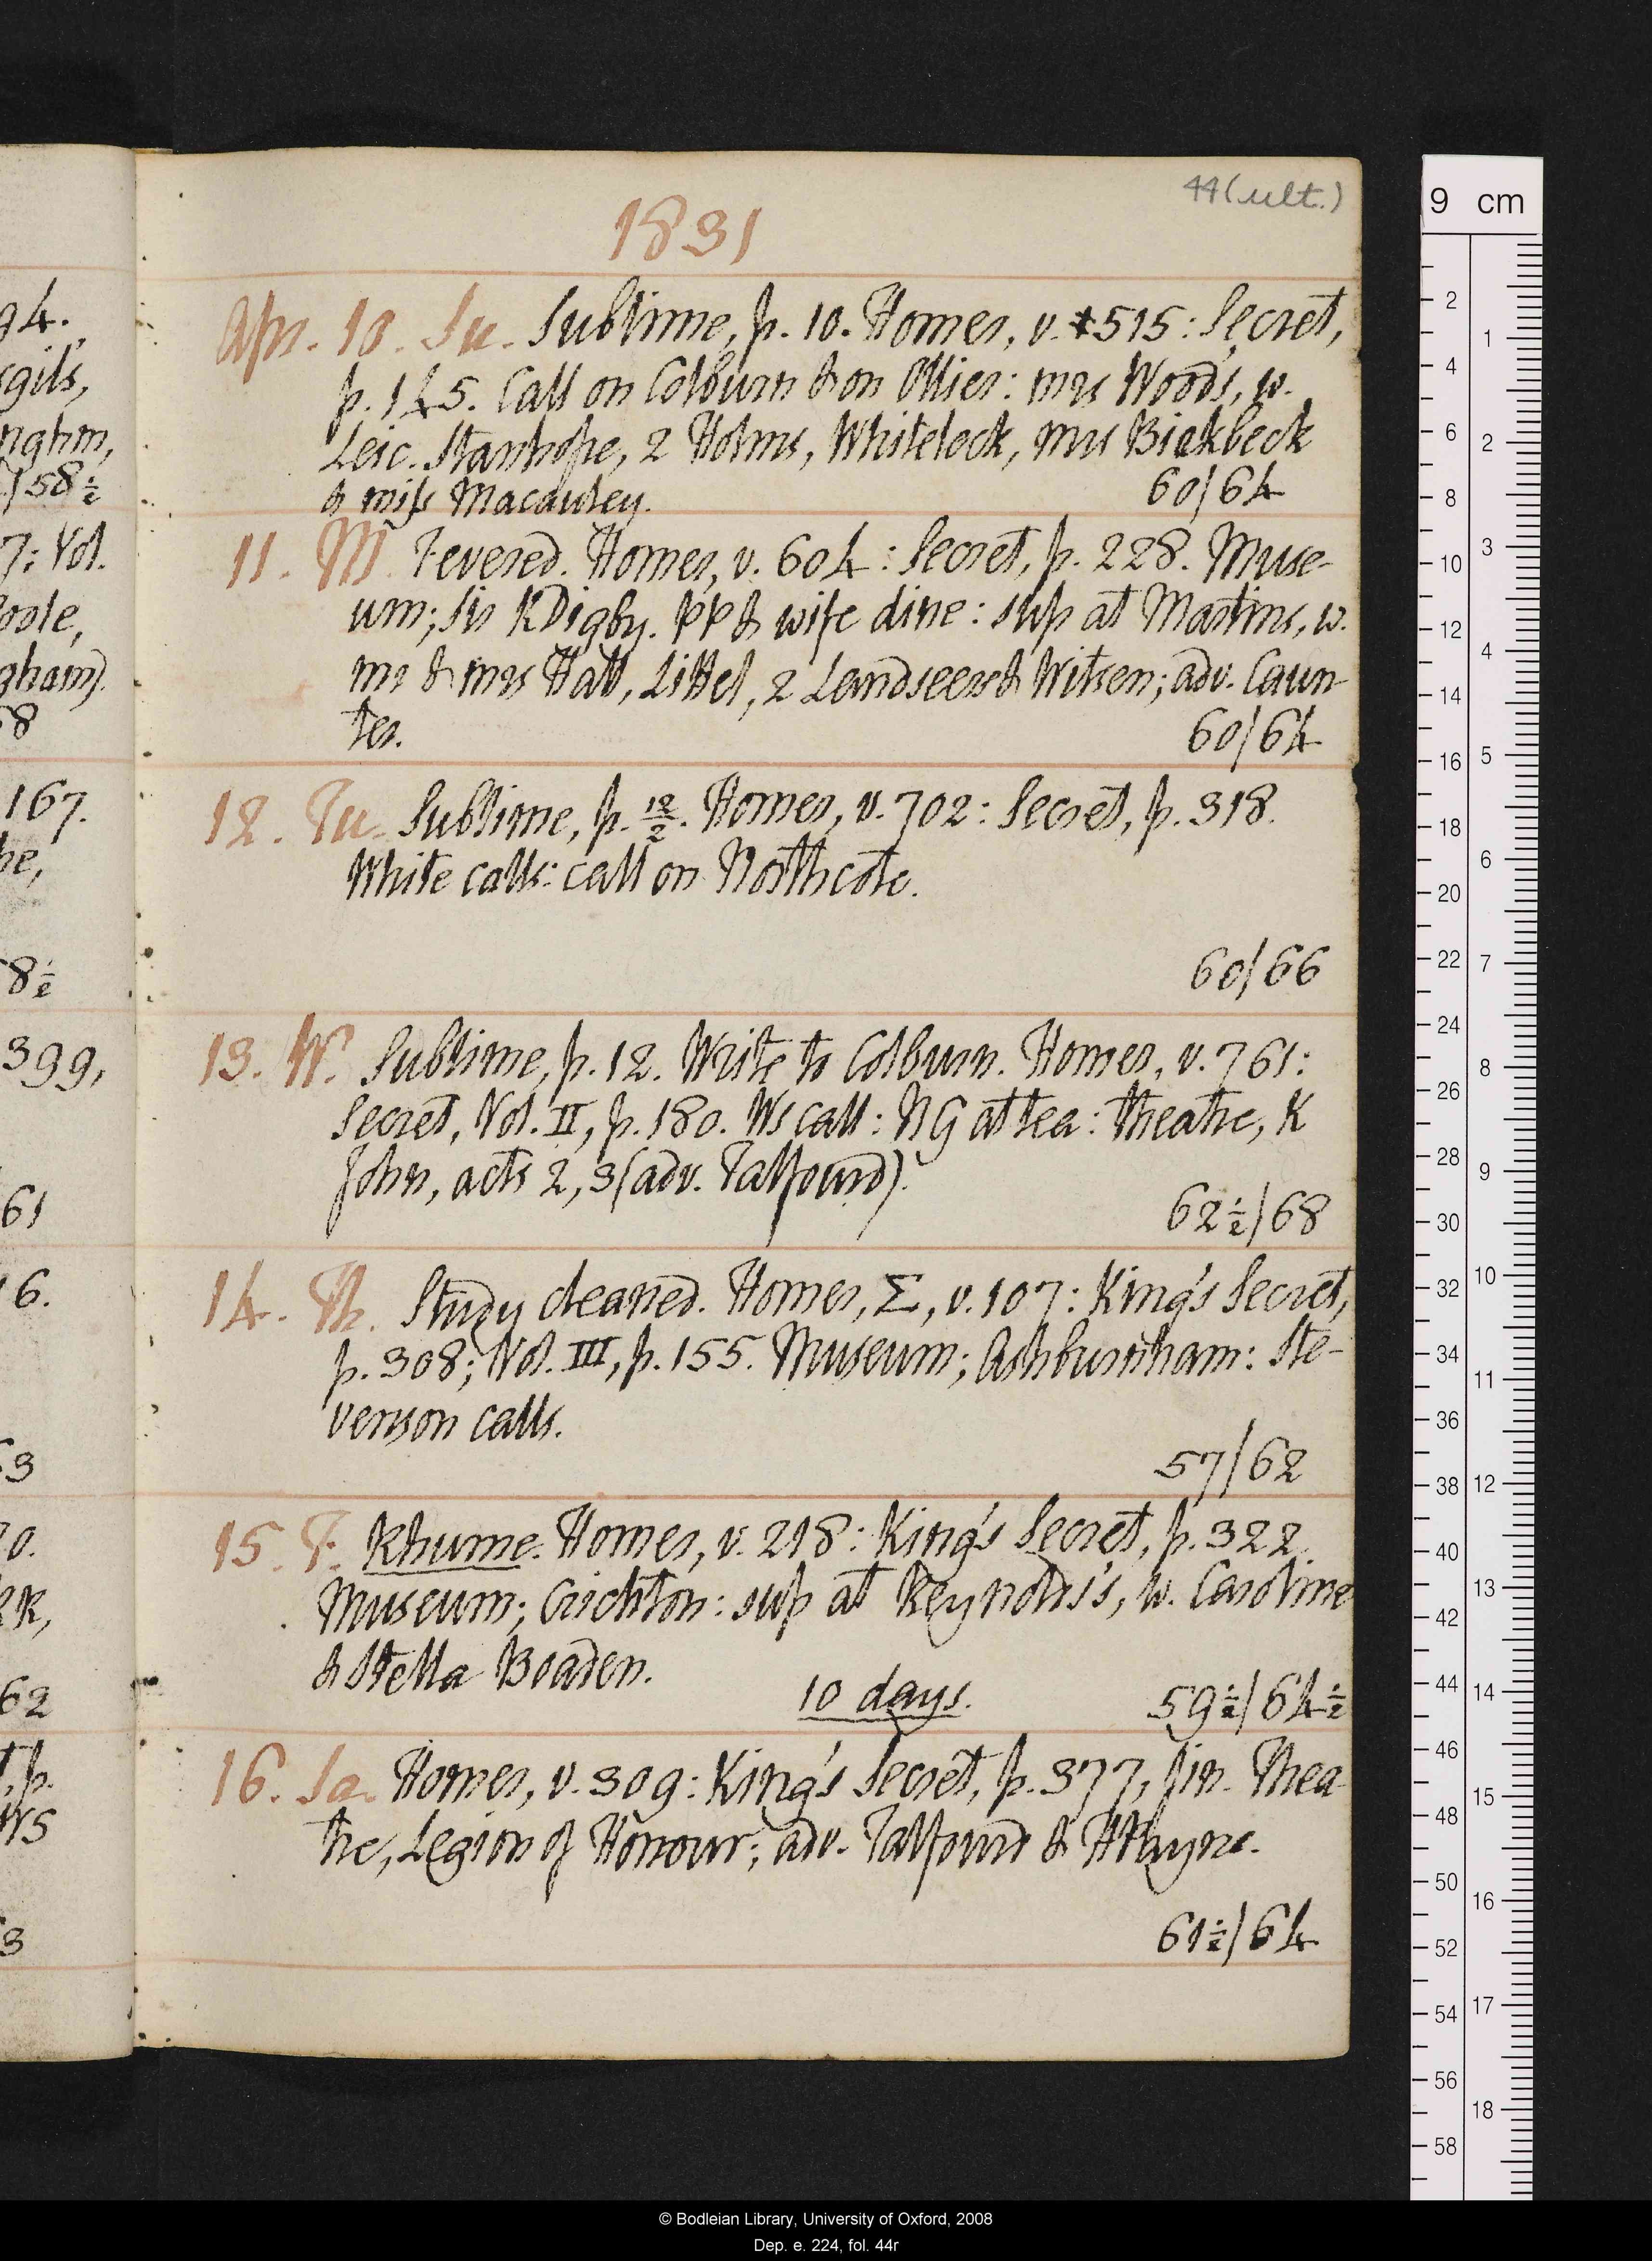 44 (ult.)
1831
Apr. 10. Su. Sublime, p. 10. Homer, v. *515: Secret,
p. 145. Call on Colburn & on Ollier: mrs Wood's, w.
Leic. Stanhope, 2 Holms, Whitelock, mrs Birkbeck
& miss Macauley. 60/64
11. M. Fevered. Homer, v. 604: Secret, p. 228. Muse-
um; sir K Digby. PP & wife dine: sup at Martins, w.
mr & mrs Hall, Littel, 2 Landseers & Witsen; adv. Caun-
ter. 60/64
12. Tu. Sublime, p. 12/2. Homer, v. 702: Secret, p. 318.
White calls: call on Northcote.
60/66
13. W. Sublime, p. 12. Write to Colburn. Homer, v. 761:
Secret, Vol. II, p. 180. Ws call: NG at tea: theatre, K
John, acts 2, 3 (adv. Talfourd).
62½/68
14. Th. Study cleaned. Homer, Σ, v. 107: King's Secret,
p. 308; Vol. III, p. 155. Museum; Ashburnham: Ste-
venson calls.
57/62
15. F. Rhume. Homer, v. 218: King's Secret, p. 322.
Museum; Crichton: sup at Reynolds's, w. Caroline
& Stella Boaden. 10 days. 59½/64½
16. Sa. Homer, v. 309: King's Secret, p. 377, fin. Thea-
tre, Legion of Honour; adv. Talfourd & Hthyne.
61½/64
9 cm
© Bodleian Library, University of Oxford, 2008
Dep. e. 224, fol. 44r